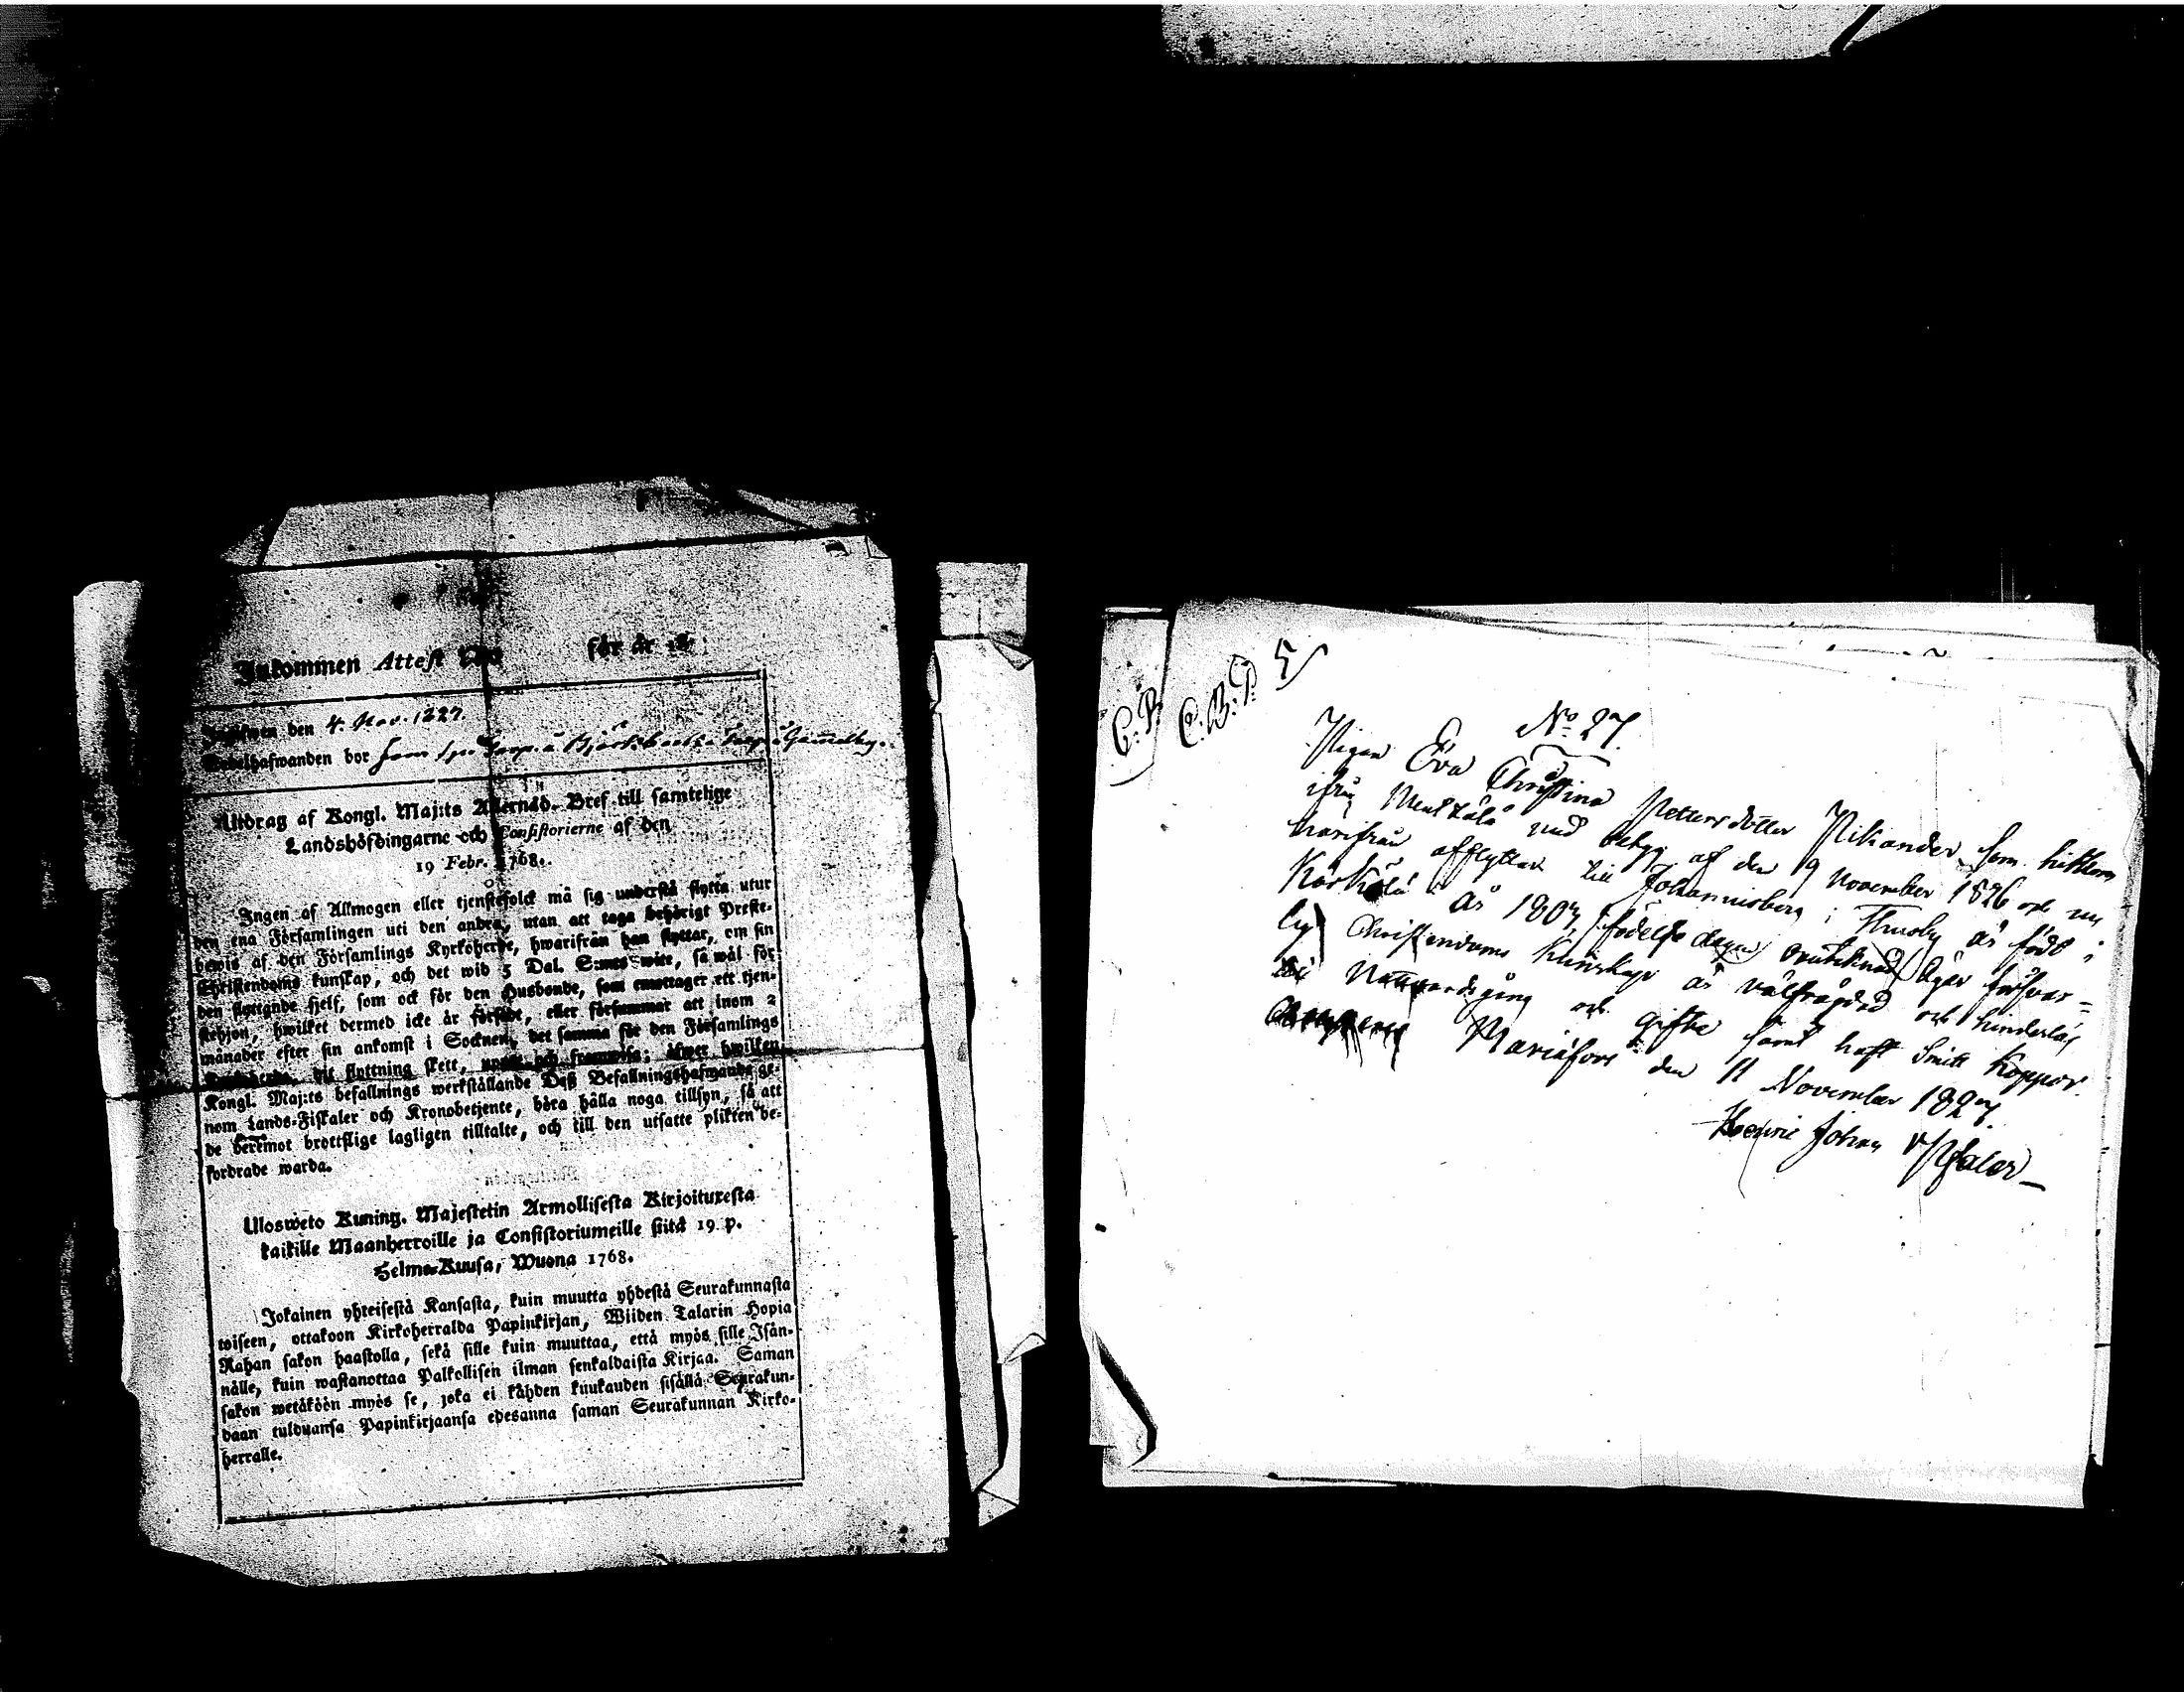 Inkommen Attest N:o för år 18
den 4. Nov. 1827.
hafwanden bor
Utdrag af Kongl. Maj:ts Allernåd. Bref till samtelige
Landshöfdingarne och Consistorierne af den
19 Febr. 1768.
Ingen af Allmogen eller tjenstefolck må sig understå flytta utur
den ena Församlingen uti den andra, utan att taga behörigt Preste-
bewis af den Församlings Kyrkoherde, hwarifrån han flyttar, om sin
Christendoms kunskap, och det wid 5 Dal. S:mts wite, så wäl för
den flyttande sjelf, som ock för den Husbonde, som emottager ett tjen-
stehjon, hwilket dermed icke är försedt, eller försummar att inom 2
månader efter sin ankomst i Socknen, det samma för den Församlings
flyttning skett, upte och framwisa; öfwer hwilken
Kongl. Maj:ts befallnings werkställande Deß Befallningshafwande ge-
nom Lands-Fiskaler och Kronobetjente, böra hålla noga tillsyn, så att
de deremot brottslige lagligen tilltalte, och till den utsatte plikten be-
fordrade warda.
Ulosweto Kuning. Majestetin Armollisesta Kirjoituxesta
kaikille Maanherroille ja Consistoriumeille siitä 19 p.
Helme-Kuusa, Wuona 1768.
Jokainen yhteisestä Kansasta, kuin muutta yhdestä Seurakunnasta
toiseen, ottakoon Kirkoherralda Papinkirjan, Wiiden Talarin Hopia
Rahan sakon haastolla, sekä sille kuin muuttaa, että myös sille Isän-
nälle, kuin wastanottaa Palkollisen ilman senkaldaista Kirjaa. Saman
sakon wetäköön myös se, joka ei kahden kuukauden sisällä Seurakun-
daan tulduansa Papinkirjaansa edesanna saman Seurakunnan Kirko-
herralle.
C. B.
C. B. P. 5
N:o 27.
Pigan Eva Christina Pettersdotter Pikander som hitkom
ifrån Mentzälä med betyg af den 9 November 1826 och nu
härifrån afflyttar till Johannisberg i Thusby är född i
Kärkölä år 1807, födelse dagen outsatt äger försvar-
lig Christendoms Kunskap är välfrägdad och hinderlös
till Nattvardsgång och gifte samt haft Smitt Koppor.
Mariæfors den 11 November 1827.
Henric Johan v Pfaler